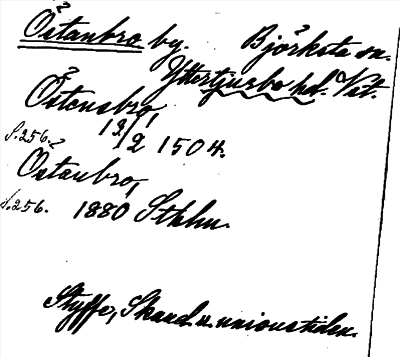 Östanbro by. Björksta sn.
Yttertjurbo hd. Vst.
Östensbro
s.256. 12/2 1504.
Östanbro,
s.256. 1880 Stkhn.
Styffe, Skand. u. unionstiden.